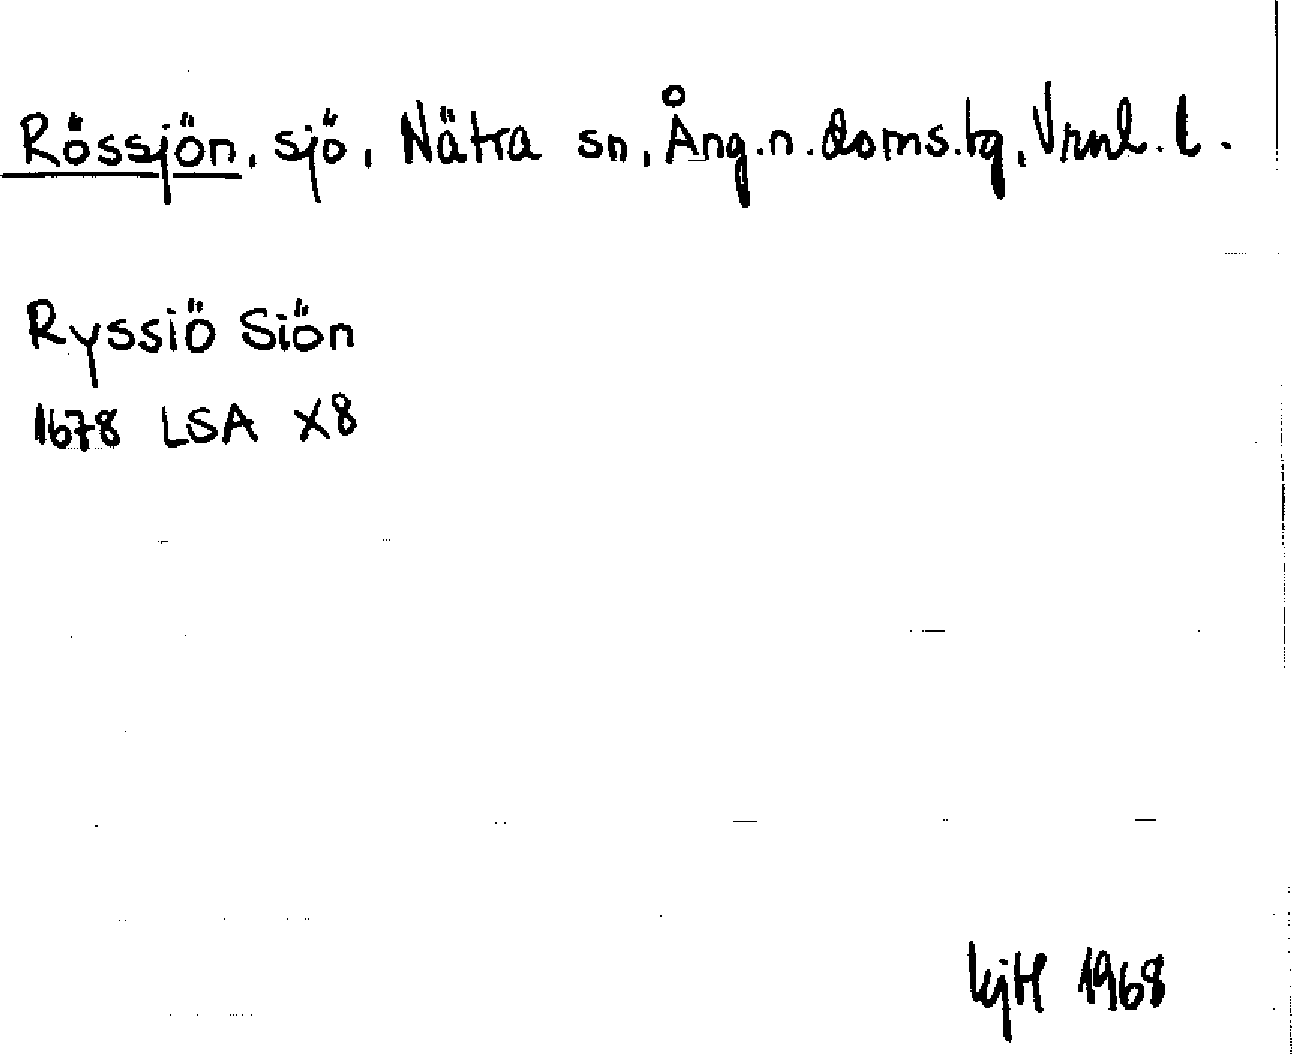 Rössjön, sjö, Nätra sn, Ång.n.doms.tg, Vrnl.l.
Ryssiö Siön
1678 LSA X8
1968